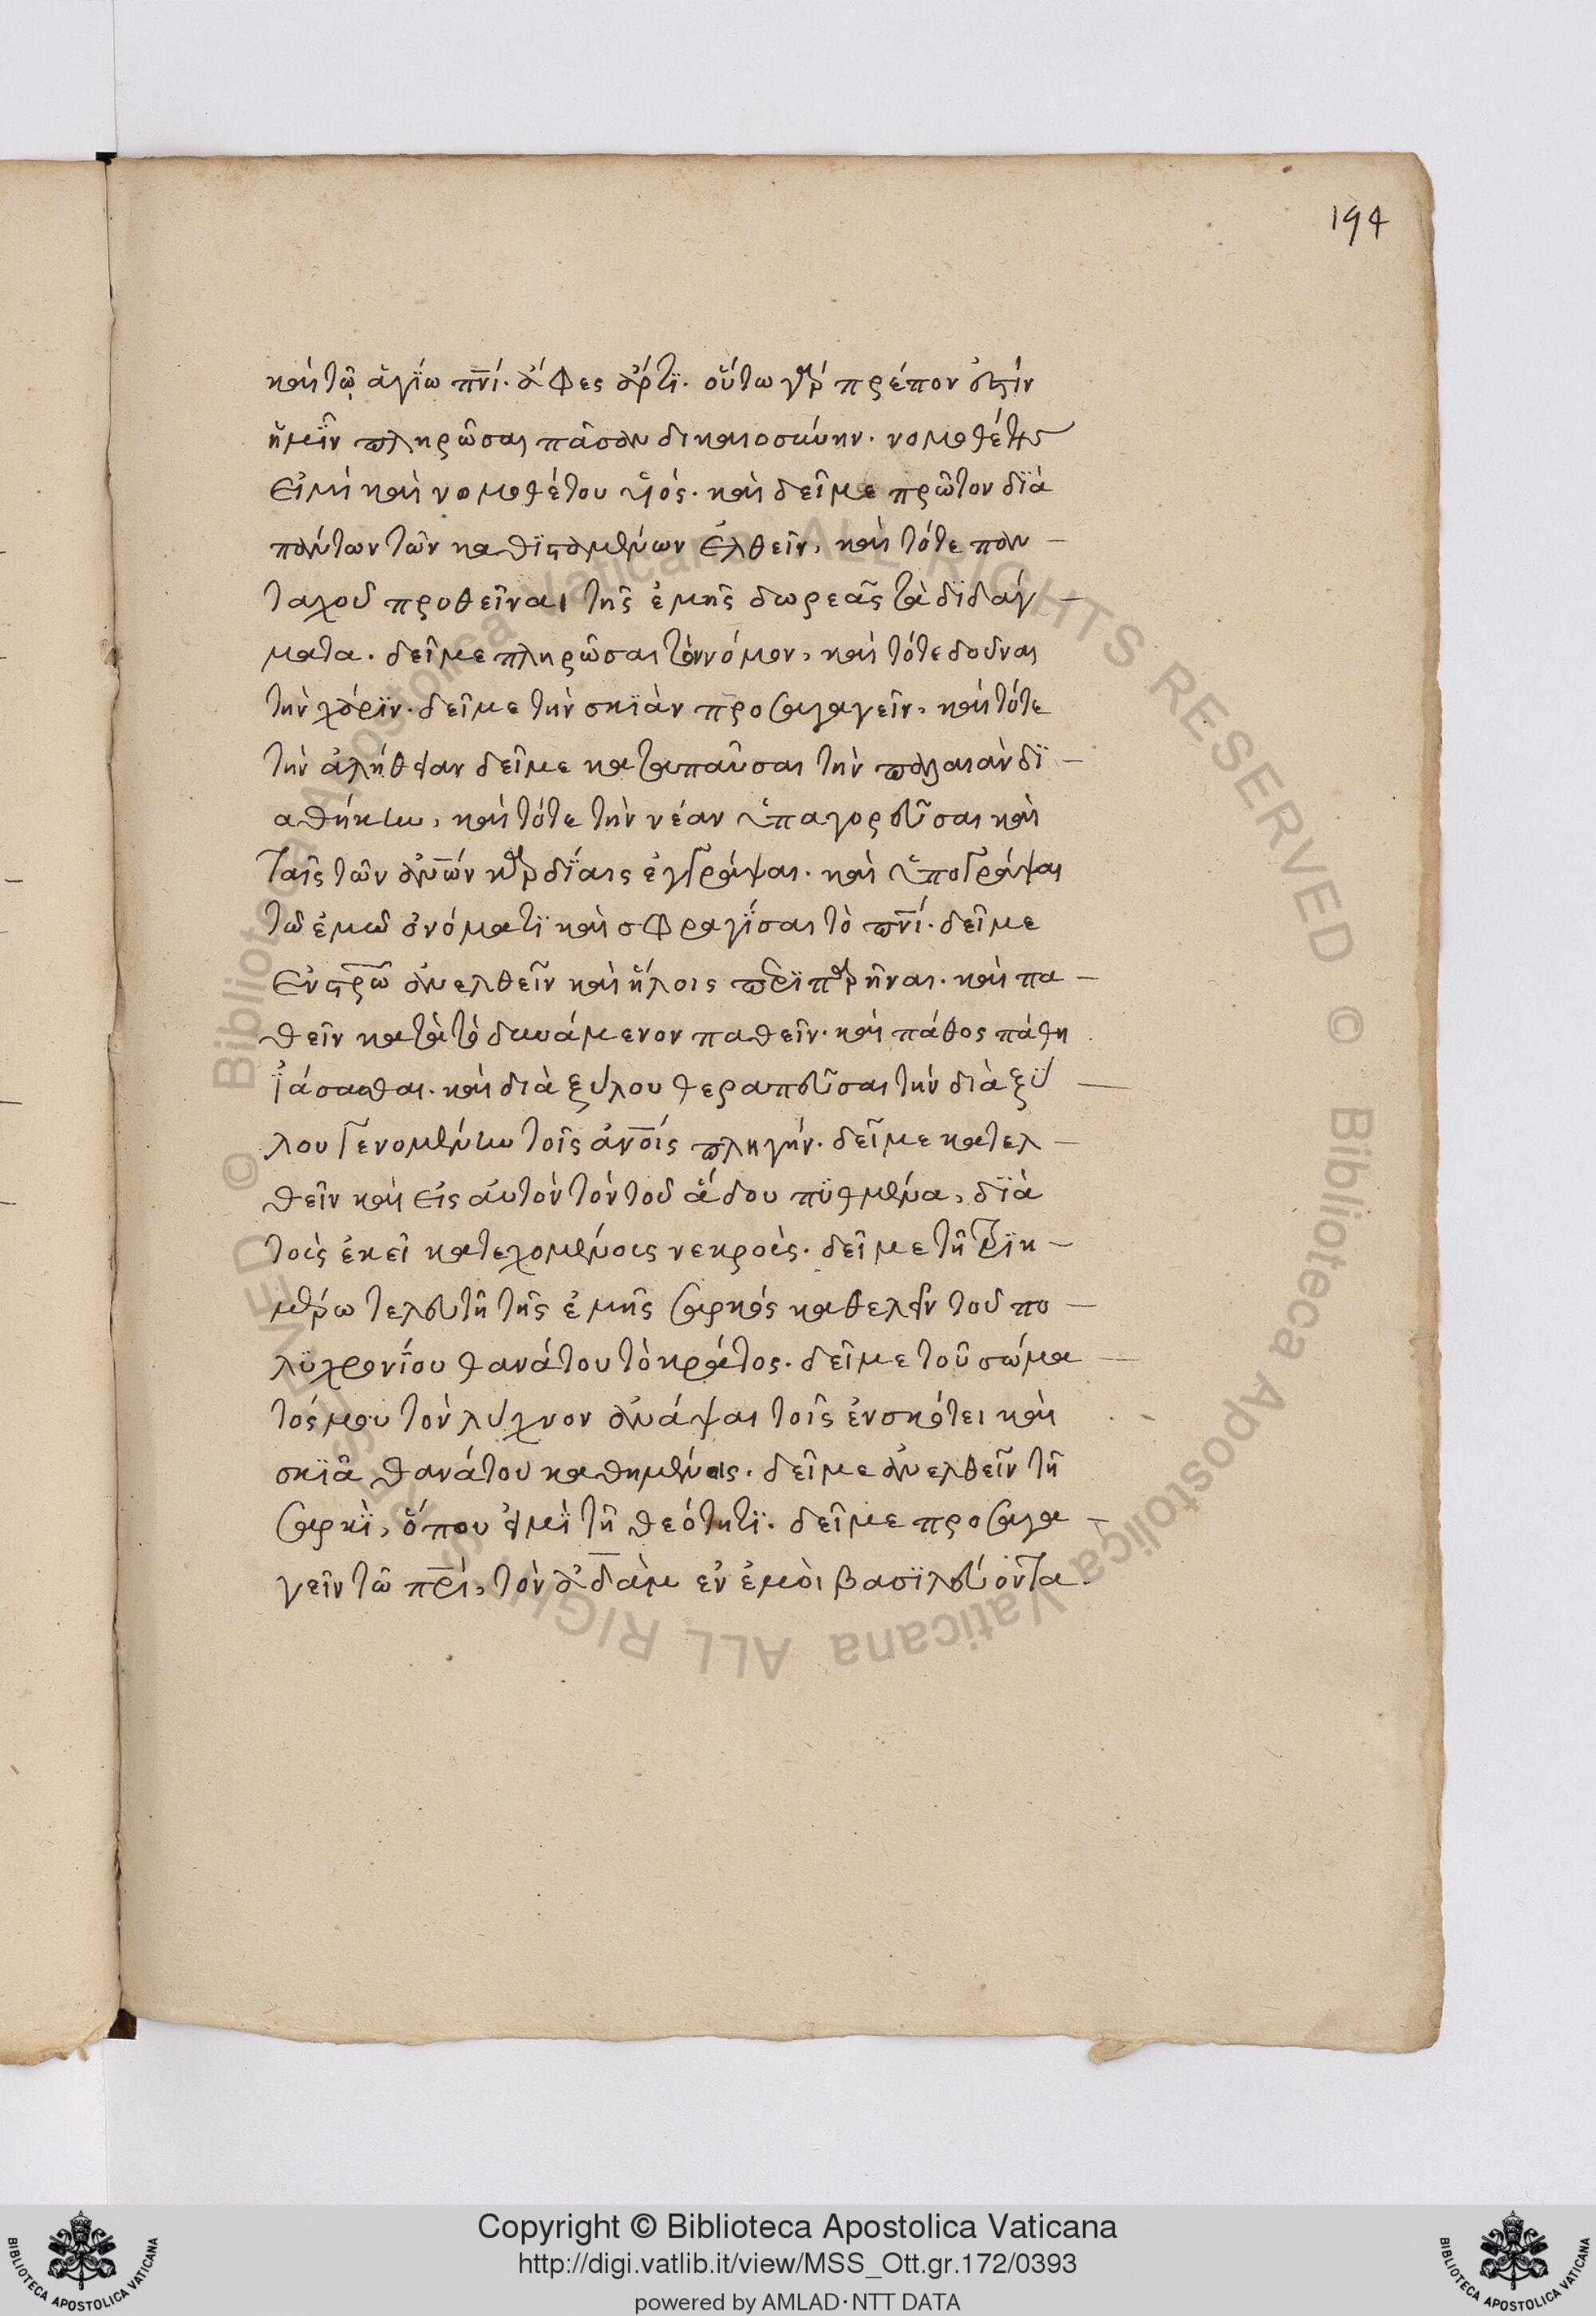 194
καὶ τῷ ἁγίω πνί. ἄφες ἄρτϊ. οὕτω γὰρ πρέπον ἐστὶν
ἡμῖν πληρῶσαι πᾶσαν δικαιοσύνην. νομοθέτης
εἰμὶ καὶ νομοθέτου υἱός. καὶ δεῖ με πρῶτον δϊὰ
πάντων τῶν καθϊσταμένων ἐλθεῖν, καὶ τότε παν
ταχοῦ προθεῖναι τῆς ἐμῆς δωρεᾶς τὰ δϊδάγ
ματα. δεῖ με πληρῶσαι τὸν νόμον, καὶ τότε δοῦναι
τὴν χάρϊν. δεῖ με τὴν σκϊὰν προσαγαγεῖν, καὶ τότε
τὴν ἀλήθειαν δεῖ με καταπαῦσαι τὴν παλαιὰν δϊ
αθήκην, καὶ τότε τὴν νέαν ὑπαγορεῦσαι καὶ
ταῖς τῶν ἀνῶν καρδίαις ἐγγράψαι. καὶ ὑπογράψαι
τῶ ἐμῶ ὀνόματϊ καὶ σφραγίσαι τὸ πνί. δεῖ με
ἐν στρῶ ἀνελθεῖν καὶ ἥλοις περϊπαρῆναι. καὶ πα
θεῖν κατὰ τὸ δυνάμενον παθεῖν. καὶ πάθος πάθη
ἰάσασθαι. καὶ διὰ ξύλου θεραπεῦσαι τὴν διὰ ξύ
λου γενομένην τοῖς ἀνοίς πληγήν. δεῖ με κατελ
θεῖν καὶ εἰς αὐτὸν τὸν τοῦ ἅδου πϋθμένα, δϊὰ
τοὺς ἐκεῖ κατεχομένους νεκρούς. δεῖ με τῆ τρϊη
μέρω τελευτῆ τῆς ἐμῆς σαρκός καθελεῖν τοῦ πο
λϋχρονίου θανάτου τὸ κράτος. δεῖ με τοῦ σώμα
τός μου τὸν λύχνον ἀνάψαι τοῖς ἐν σκότει καὶ
σκϊᾶ θανάτου καθημένοις. δεῖ με ἀνελθεῖν τῆ
σαρκϊ, ὅπου εἰμϊ τῆ θεότητϊ. δεῖ με προσαγα
γεῖν τῶ πρὶ, τὸν ἀδὰμ ἐν ἐμοὶ βασϊλεύοντα.
Copyright © Biblioteca Apostolica Vaticana
http://digi.vatlib.it/view/MSS_Ott.gr.172/0393
powered by AMLAD·NTT DATA
© Biblioteca Apostolica Vaticana ALL RIGHTS RESERVED
BIBLIOTECA APOSTOLICA VATICANA
BIBLIOTECA APOSTOLICA VATICANA